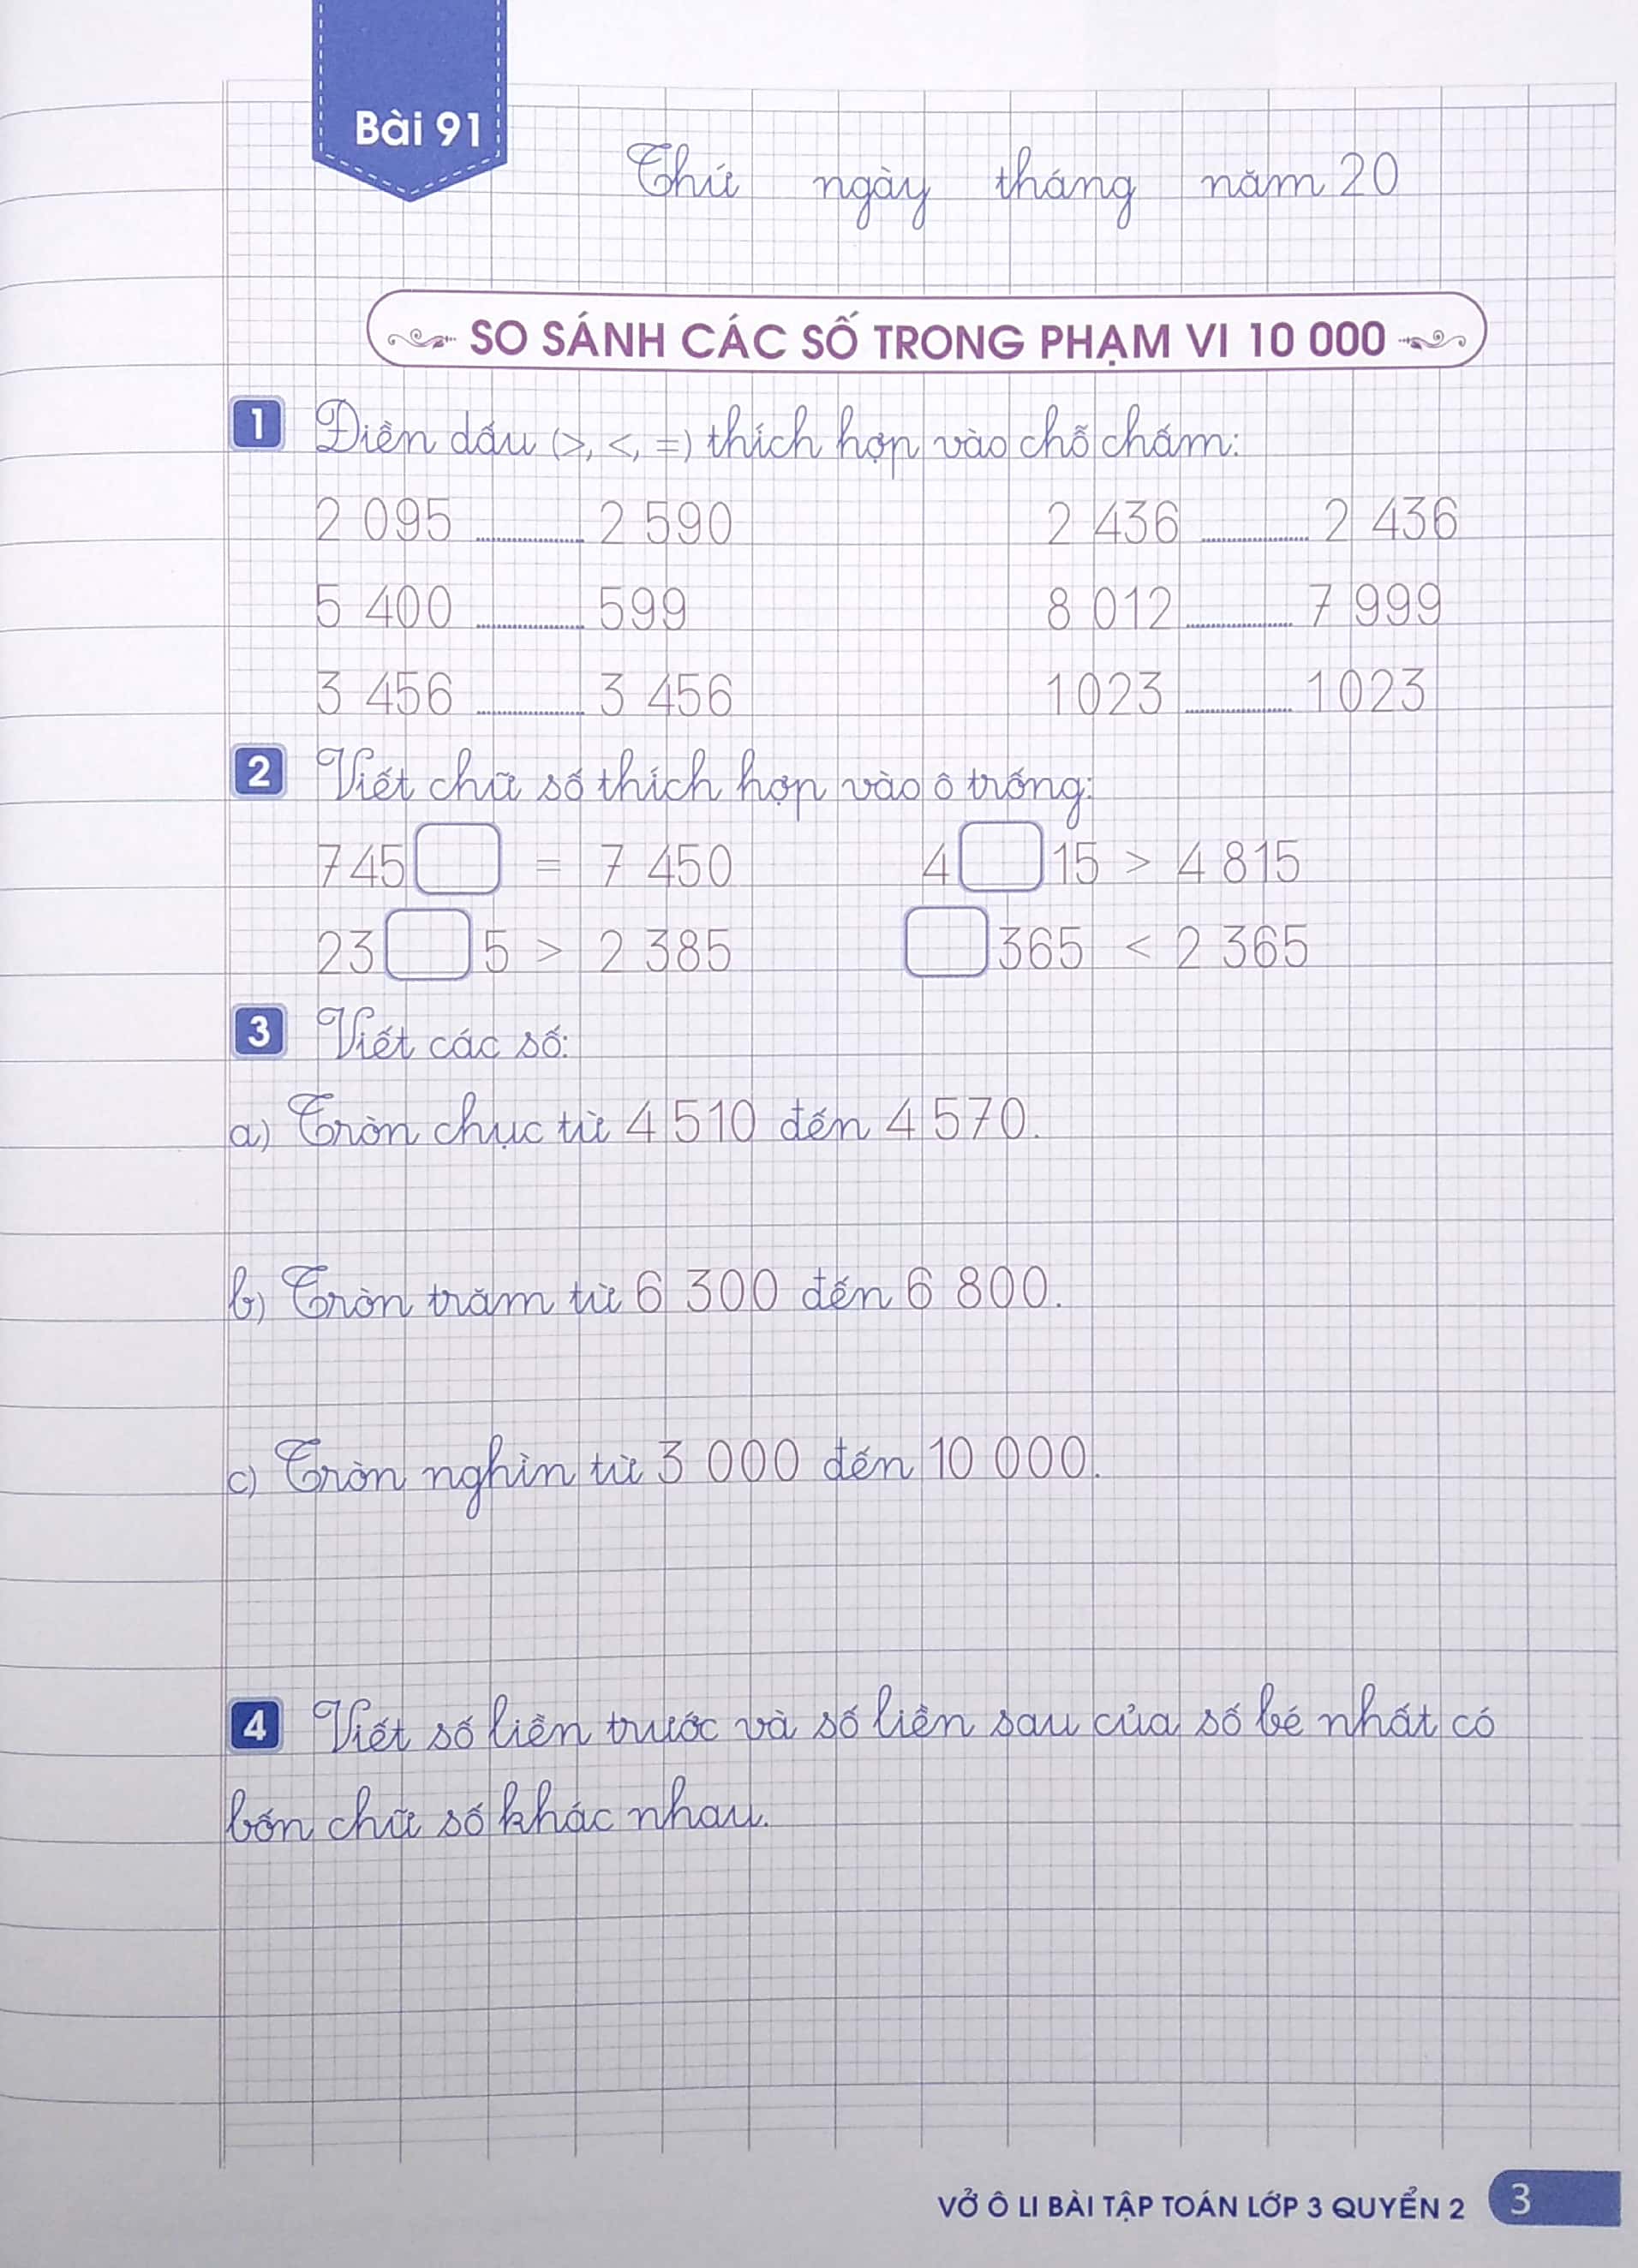 Bài 91
Thứ ngày tháng năm 20
SO SÁNH CÁC SỐ TRONG PHẠM VI 10 000
1 Điền dấu (>, <, =) thích hợp vào chỗ chấm:
2 095 ........ 2 590 2 436 ........ 2 436
5 400 ........ 599 8 012 ........ 7 999
3 456 ........ 3 456 1023 ........ 1023
2 Viết chữ số thích hợp vào ô trống:
745 = 7 450 4 15 > 4 815
23 5 > 2 385 365 < 2 365
3 Viết các số:
a) Tròn chục từ 4 510 đến 4 570.
b) Tròn trăm từ 6 300 đến 6 800.
c) Tròn nghìn từ 3 000 đến 10 000.
4 Viết số liền trước và số liền sau của số bé nhất có
bốn chữ số khác nhau.
VỞ Ô LI BÀI TẬP TOÁN LỚP 3 QUYỂN 2 3